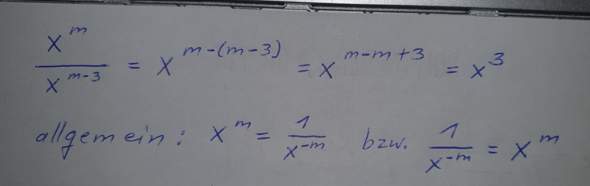 x^m / x^(m-3) = x^(m-(m-3)) = x^(m-m+3) = x^3
allgemein: x^m = 1 / x^(-m) bzw. 1 / x^(-m) = x^m